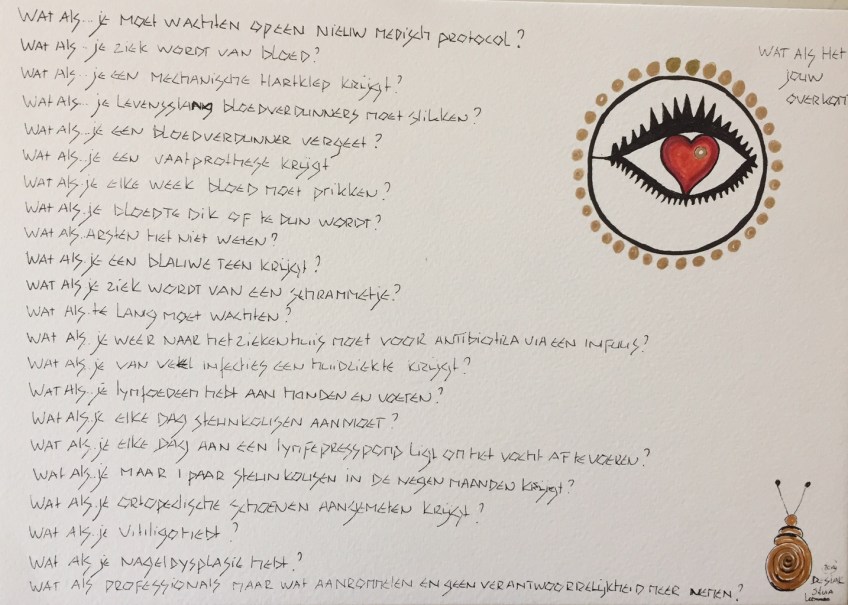 WAT ALS... je MOET WACHTEN OP EEN NIEUW MEDISCH PROTOCOL?
WAT ALS.. je ZIEK WORDT VAN BLOED?
WAT ALS... je EEN MECHANISCHE HARTKLEP KRIJGT?
WAT ALS... je LEVENSSLANG BLOEDVERDUNNERS MOET SLIKKEN?
WAT ALS... je EEN BLOEDVERDUNNER VERGEET?
WAT ALS... je EEN VAATPROTHESE KRIJGT
WAT ALS.. je ELKE WEEK BLOED MOET PRIKKEN?
WAT ALS.. je BLOED TE DIK OF TE DUN WORDT?
WAT ALS.. ARSTEN HET NIET WETEN?
WAT ALS.. je EEN BLAUWE TEEN KRIJGT?
WAT ALS.. je ZIEK WORDT VAN EEN SCHRAMMETJE?
WAT ALS.. TE LANG MOET WACHTEN?
WAT ALS.. je WEER NAAR HET ZIEKENHUIS MOET VOOR ANTIBIOTICA VIA EEN INFUUS?
WAT ALS.. je VAN VEEL INFECTIES EEN HUIDZIEKTE KRIJGT?
WAT ALS... je LYMFOEDEEM HEBT AAN HANDEN EN VOETEN?
WAT ALS.. je ELKE DAG STEUNKOUSEN AANMOET?
WAT ALS.. je ELKE DAG AAN EEN LYMFEPRESSPOMP LIGT OM HET VOCHT AF TE VOEREN?
WAT ALS.. je MAAR 1 PAAR STEUNKOUSEN IN DE NEGEN MAANDEN KRIJGT?
WAT ALS.. je ORTOPEDISCHE SCHOENEN AANGEMETEN KRIJGT?
WAT ALS.. je VITILIGO HEBT?
WAT ALS je NAGELDYSPLASIE HEBT?
WAT ALS PROFESSIONALS MAAR WAT AANROMMELEN EN GEEN VERANTWOORDELIJKHEID MEER NEMEN?
WAT ALS HET
JOUW
OVERKOMT